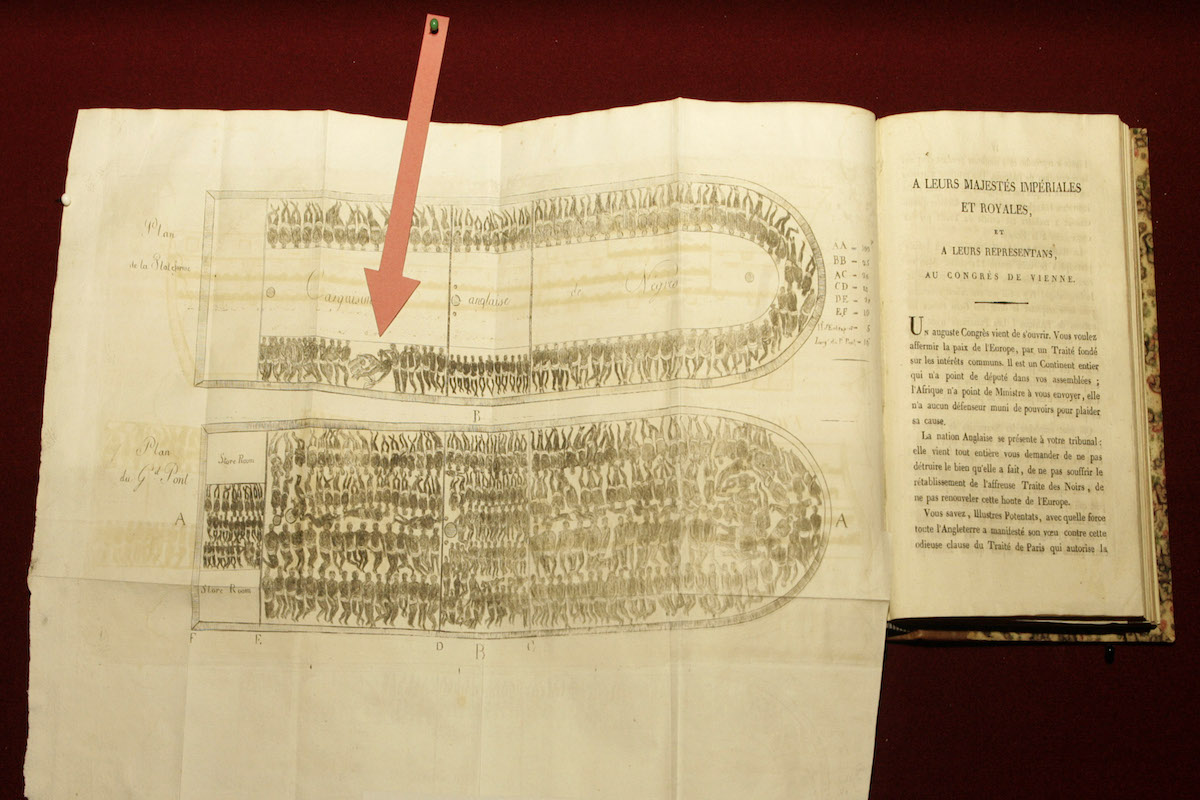 Plan
de la Plateforme
Cargaison anglaise de Nègres
AA
BB
AC
CD
DE
EF
B
Plan
du Gd Pont
Store Room
A
A
Store Room
F E D B C
A LEURS MAJESTÉS IMPÉRIALES
ET ROYALES,
ET
A LEURS REPRÉSENTANS,
AU CONGRÈS DE VIENNE.
Un auguste Congrès vient de s'ouvrir. Vous voulez
affermir la paix de l'Europe, par un Traité fondé
sur les intérêts communs. Il est un Continent entier
qui n'a point de député dans vos assemblées ;
l'Afrique n'a point de Ministre à vous envoyer, elle
n'a aucun défenseur muni de pouvoirs pour plaider
sa cause.
La nation Anglaise se présente à votre tribunal :
elle vient tout entière vous demander de ne pas
détruire le bien qu'elle a fait, de ne pas souffrir le
rétablissement de l'affreuse Traite des Noirs, de
ne pas renouveler cette honte de l'Europe.
Vous savez, Illustres Potentats, avec quelle force
toute l'Angleterre a manifesté son vœu contre cette
odieuse clause du Traité de Paris qui autorise la